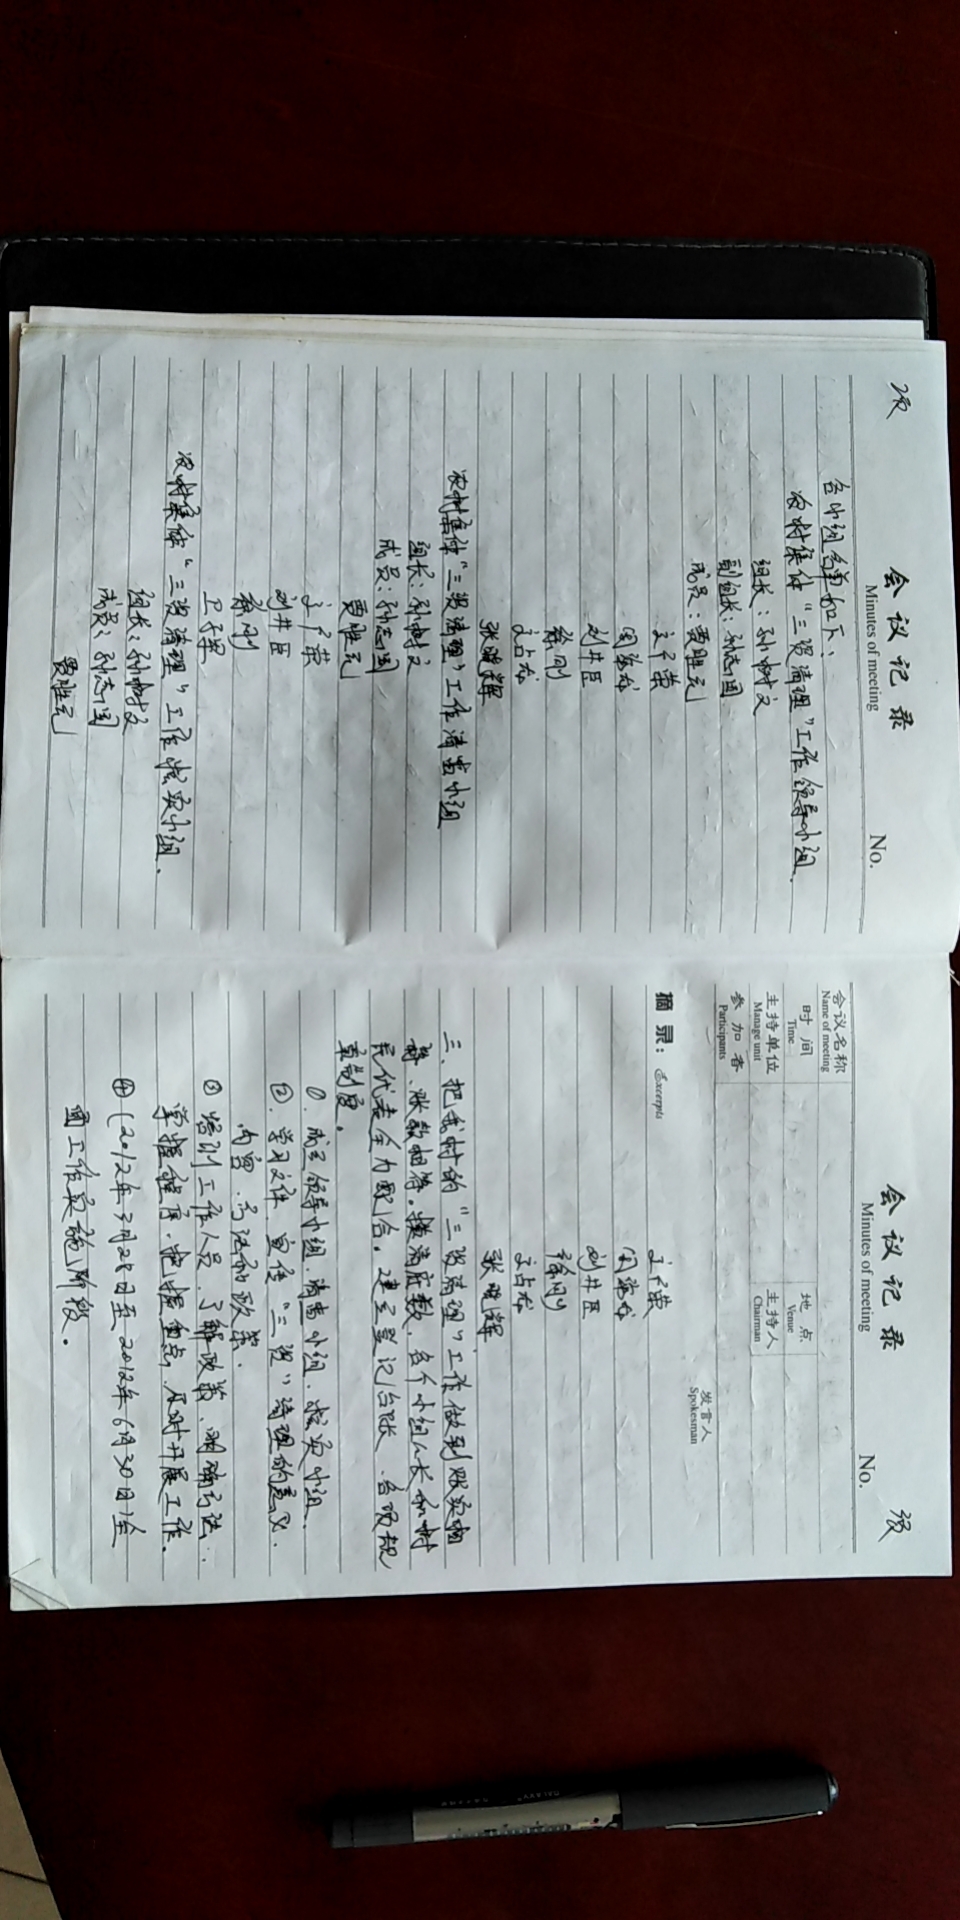 2页
会议记录
Minutes of meeting
No.
各小组名单如下:
农村集体“三资清理”工作领导小组.
组长:孙树文
副组长:孙志国
成员:贾胜元
王子荣
周海龙
刘井臣
徐刚
王占龙
张晓辉
农村集体“三资清理”工作清查小组
组长:孙树文
成员:孙志国
贾胜元
王子荣
刘井臣
徐刚
农村集体“三资清理”工作核实小组.
组长:孙树文
成员:孙志国
贾胜元
会议记录
Minutes of meeting
No.
3页
会议名称
Name of meeting
时间
Time
地点
Venue
主持单位
Manage unit
主持人
Chairman
参加者
Participants
发言人
Spokesman
摘录:
Excerpts
王子荣
周海龙
刘井臣
徐刚
王占龙
张晓辉
三、把我村的“三资清理”工作做到账实相
符、账款相符。摸清底数,各个小组组长和村
民代表全力配合。建立登记台账、各项规
章制度。
①. 成立领导小组、清查小组、核实小组.
②. 学习文件、宣传“三资”清理的意义.
内容、方法和政策.
③ 培训工作人员、了解政策、明确方法、
掌握程序、把握重点、及时开展工作.
④ (2012年3月28日至2012年6月30日)全
面工作实施阶段。